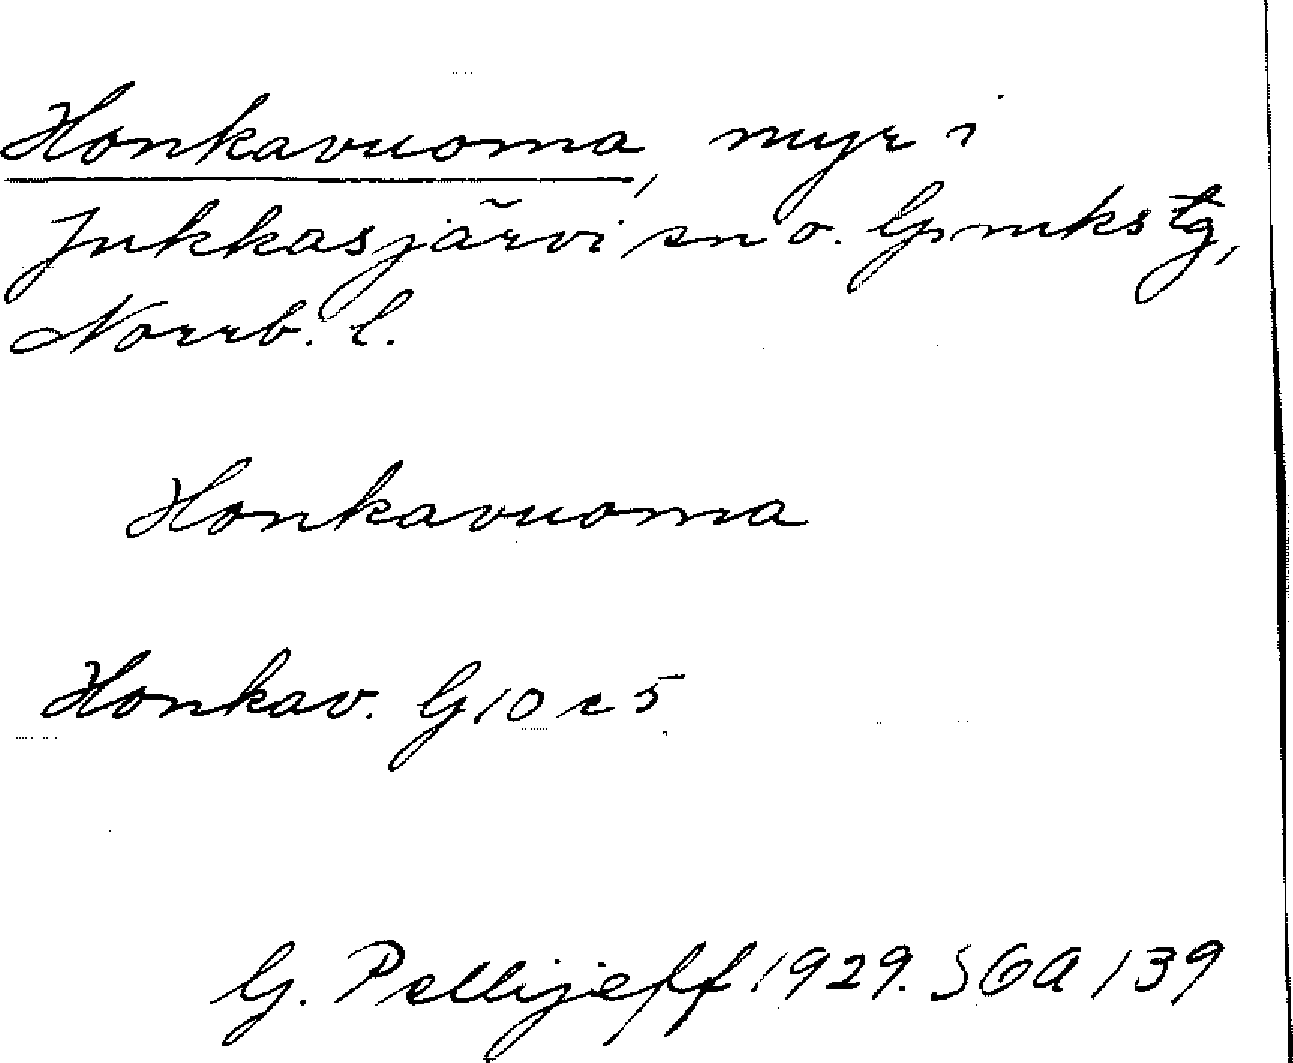 Honkavuoma, myr i
Jukkasjärvi sn o. Gmkstg,
Norrb. l.
Honkavuoma
Honkav. G10 c5
G. Pellijeff 1929. SGA 139